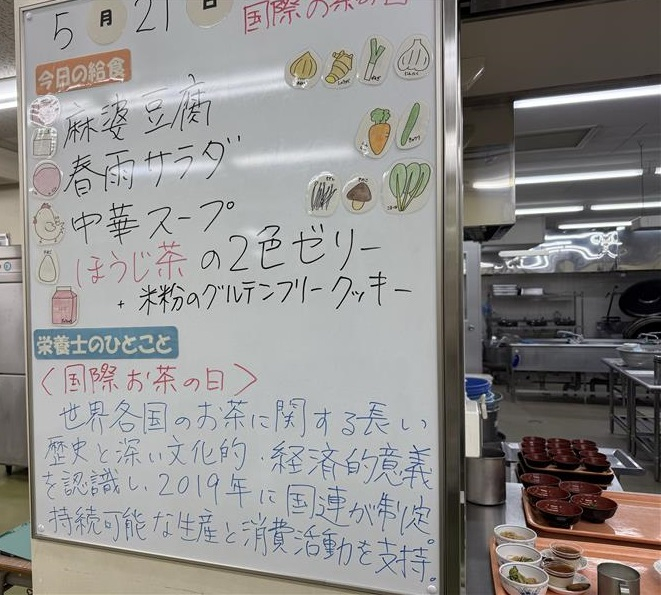 5月21日
国際お茶の日
今日の給食
麻婆豆腐
春雨サラダ
中華スープ
ほうじ茶の2色ゼリー
+ 米粉のグルテンフリークッキー
栄養士のひとこと
〈国際お茶の日〉
世界各国のお茶に関する長い
歴史と深い文化的、経済的意義
を認識し、2019年に国連が制定。
持続可能な生産と消費活動を支持。